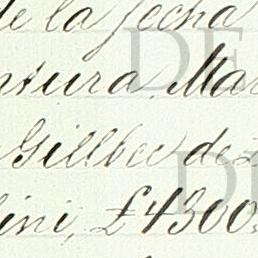 de la fecha
ntura. Mar
Gillbee de
lini, £4300.